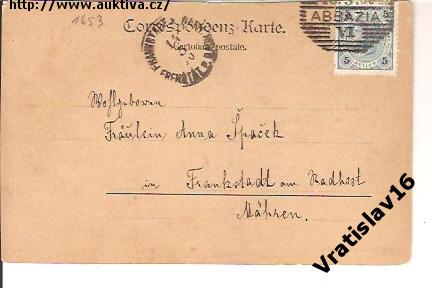 http://www.auktiva.cz/
1653
Correspondenz-Karte.
Cartolina postale.
ABBAZIA
5 5
Wohlgeboren
Fräulein Anna Špaček
in Frankstadt am Radhost
Mähren.
Vratislav16